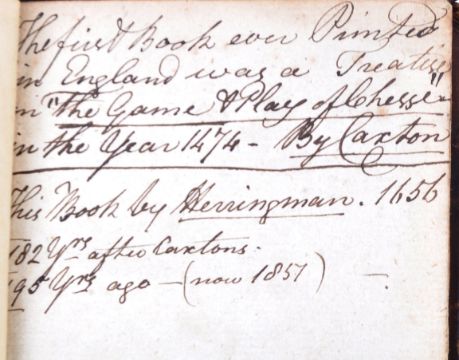 The first Book ever Printed
in England was a Treatise
on "The Game & Play of Chesse"
in the Year 1474 - By Caxton
This Book by Herringman . 1656
182 Yrs after Caxtons.
195 Yrs ago - (now 1851) -